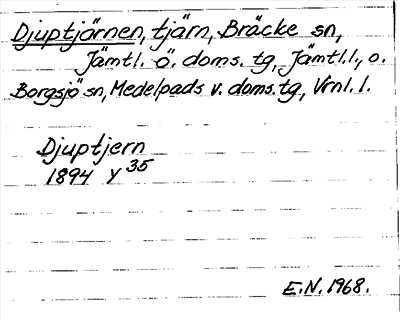 Djuptjärnen, tjärn, Bräcke sn,
Jämtl. ö. doms. tg, Jämtl.l., o.
Borgsjö sn, Medelpads v. doms. tg, Vrnl. l.
Djuptjern
1894 y 35
E.N. 1968.